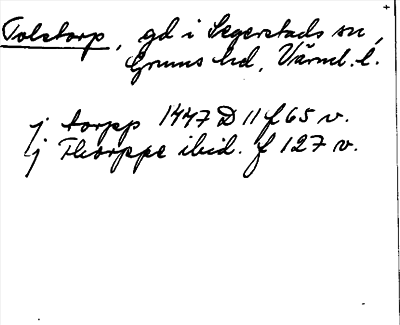 Tolstorp, gd i Segerstads sn,
Grums hd, Värml. l.
j torpp 1447 D 11 f 65 v.
j Thorppe ibid. f 127 v.